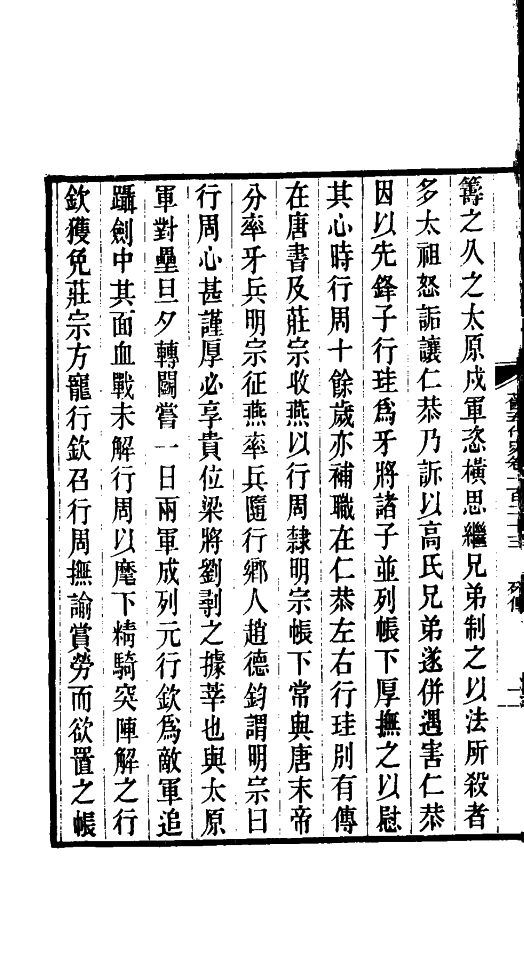 籌之久之太原戍軍恣橫思繼兄弟制之以法所殺者
多太祖怒詬讓仁恭乃訴以高氏兄弟遂併遇害仁恭
因以先鋒子行珪爲牙將諸子並列帳下厚撫之以慰
其心時行周十餘歲亦補職在仁恭左右行珪別有傳
在唐書及莊宗收燕以行周隸明宗帳下常與唐末帝
分率牙兵明宗征燕率兵隨行鄉人趙德鈞謂明宗曰
行周心甚謹厚必享貴位梁將劉鄩之據莘也與太原
軍對壘旦夕轉鬭嘗一日兩軍成列元行欽爲敵軍追
躡劍中其面血戰未解行周以麾下精騎突陣解之行
欽獲免莊宗方寵行欽召行周撫諭賞勞而欲置之帳
舊五代史卷一百二十三 列傳